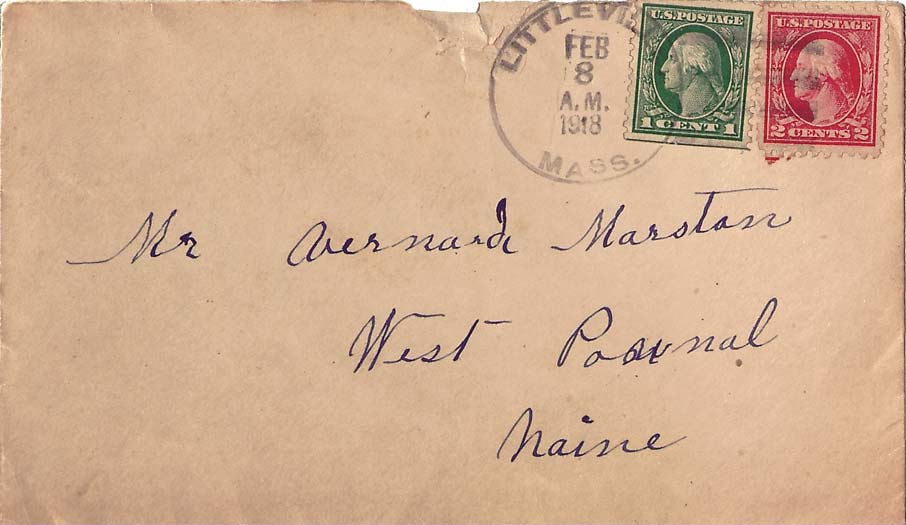 LITTLEVIL
FEB
8
A.M.
1918
MASS.
U.S.POSTAGE
1 CENT 1
U.S.POSTAGE
2 CENTS 2
Mr Vernard Marston
West Pownal
Maine